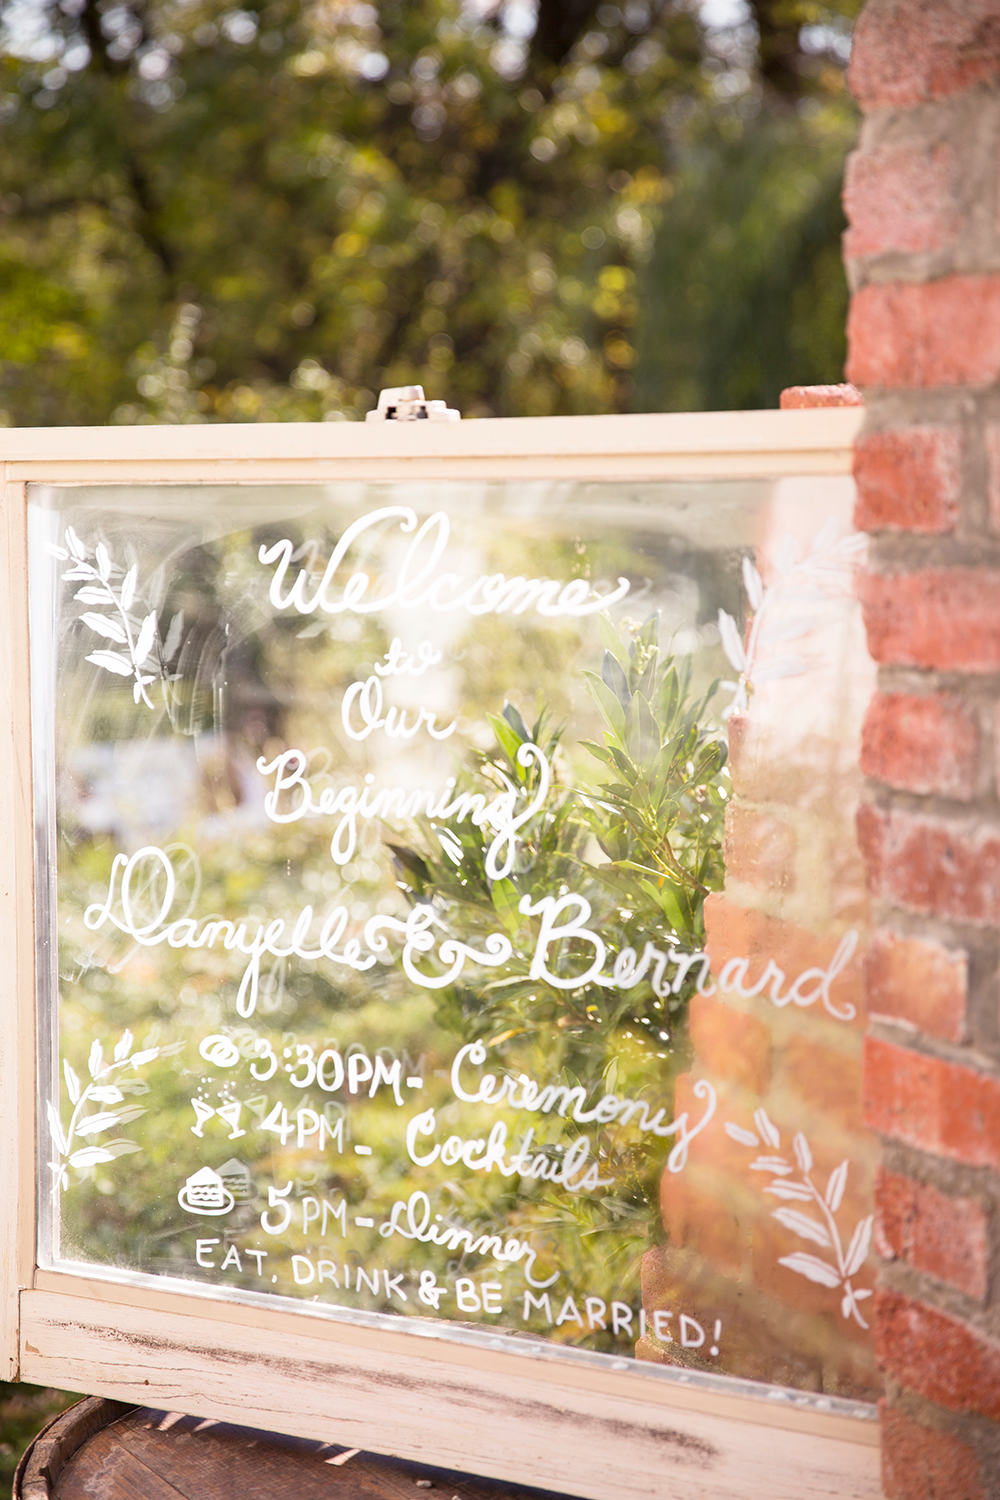 Welcome
to
Our
Beginning
Danyelle & Bernard
3:30PM- Ceremony
4PM- Cocktails
5PM-Dinner
EAT, DRINK & BE MARRIED!